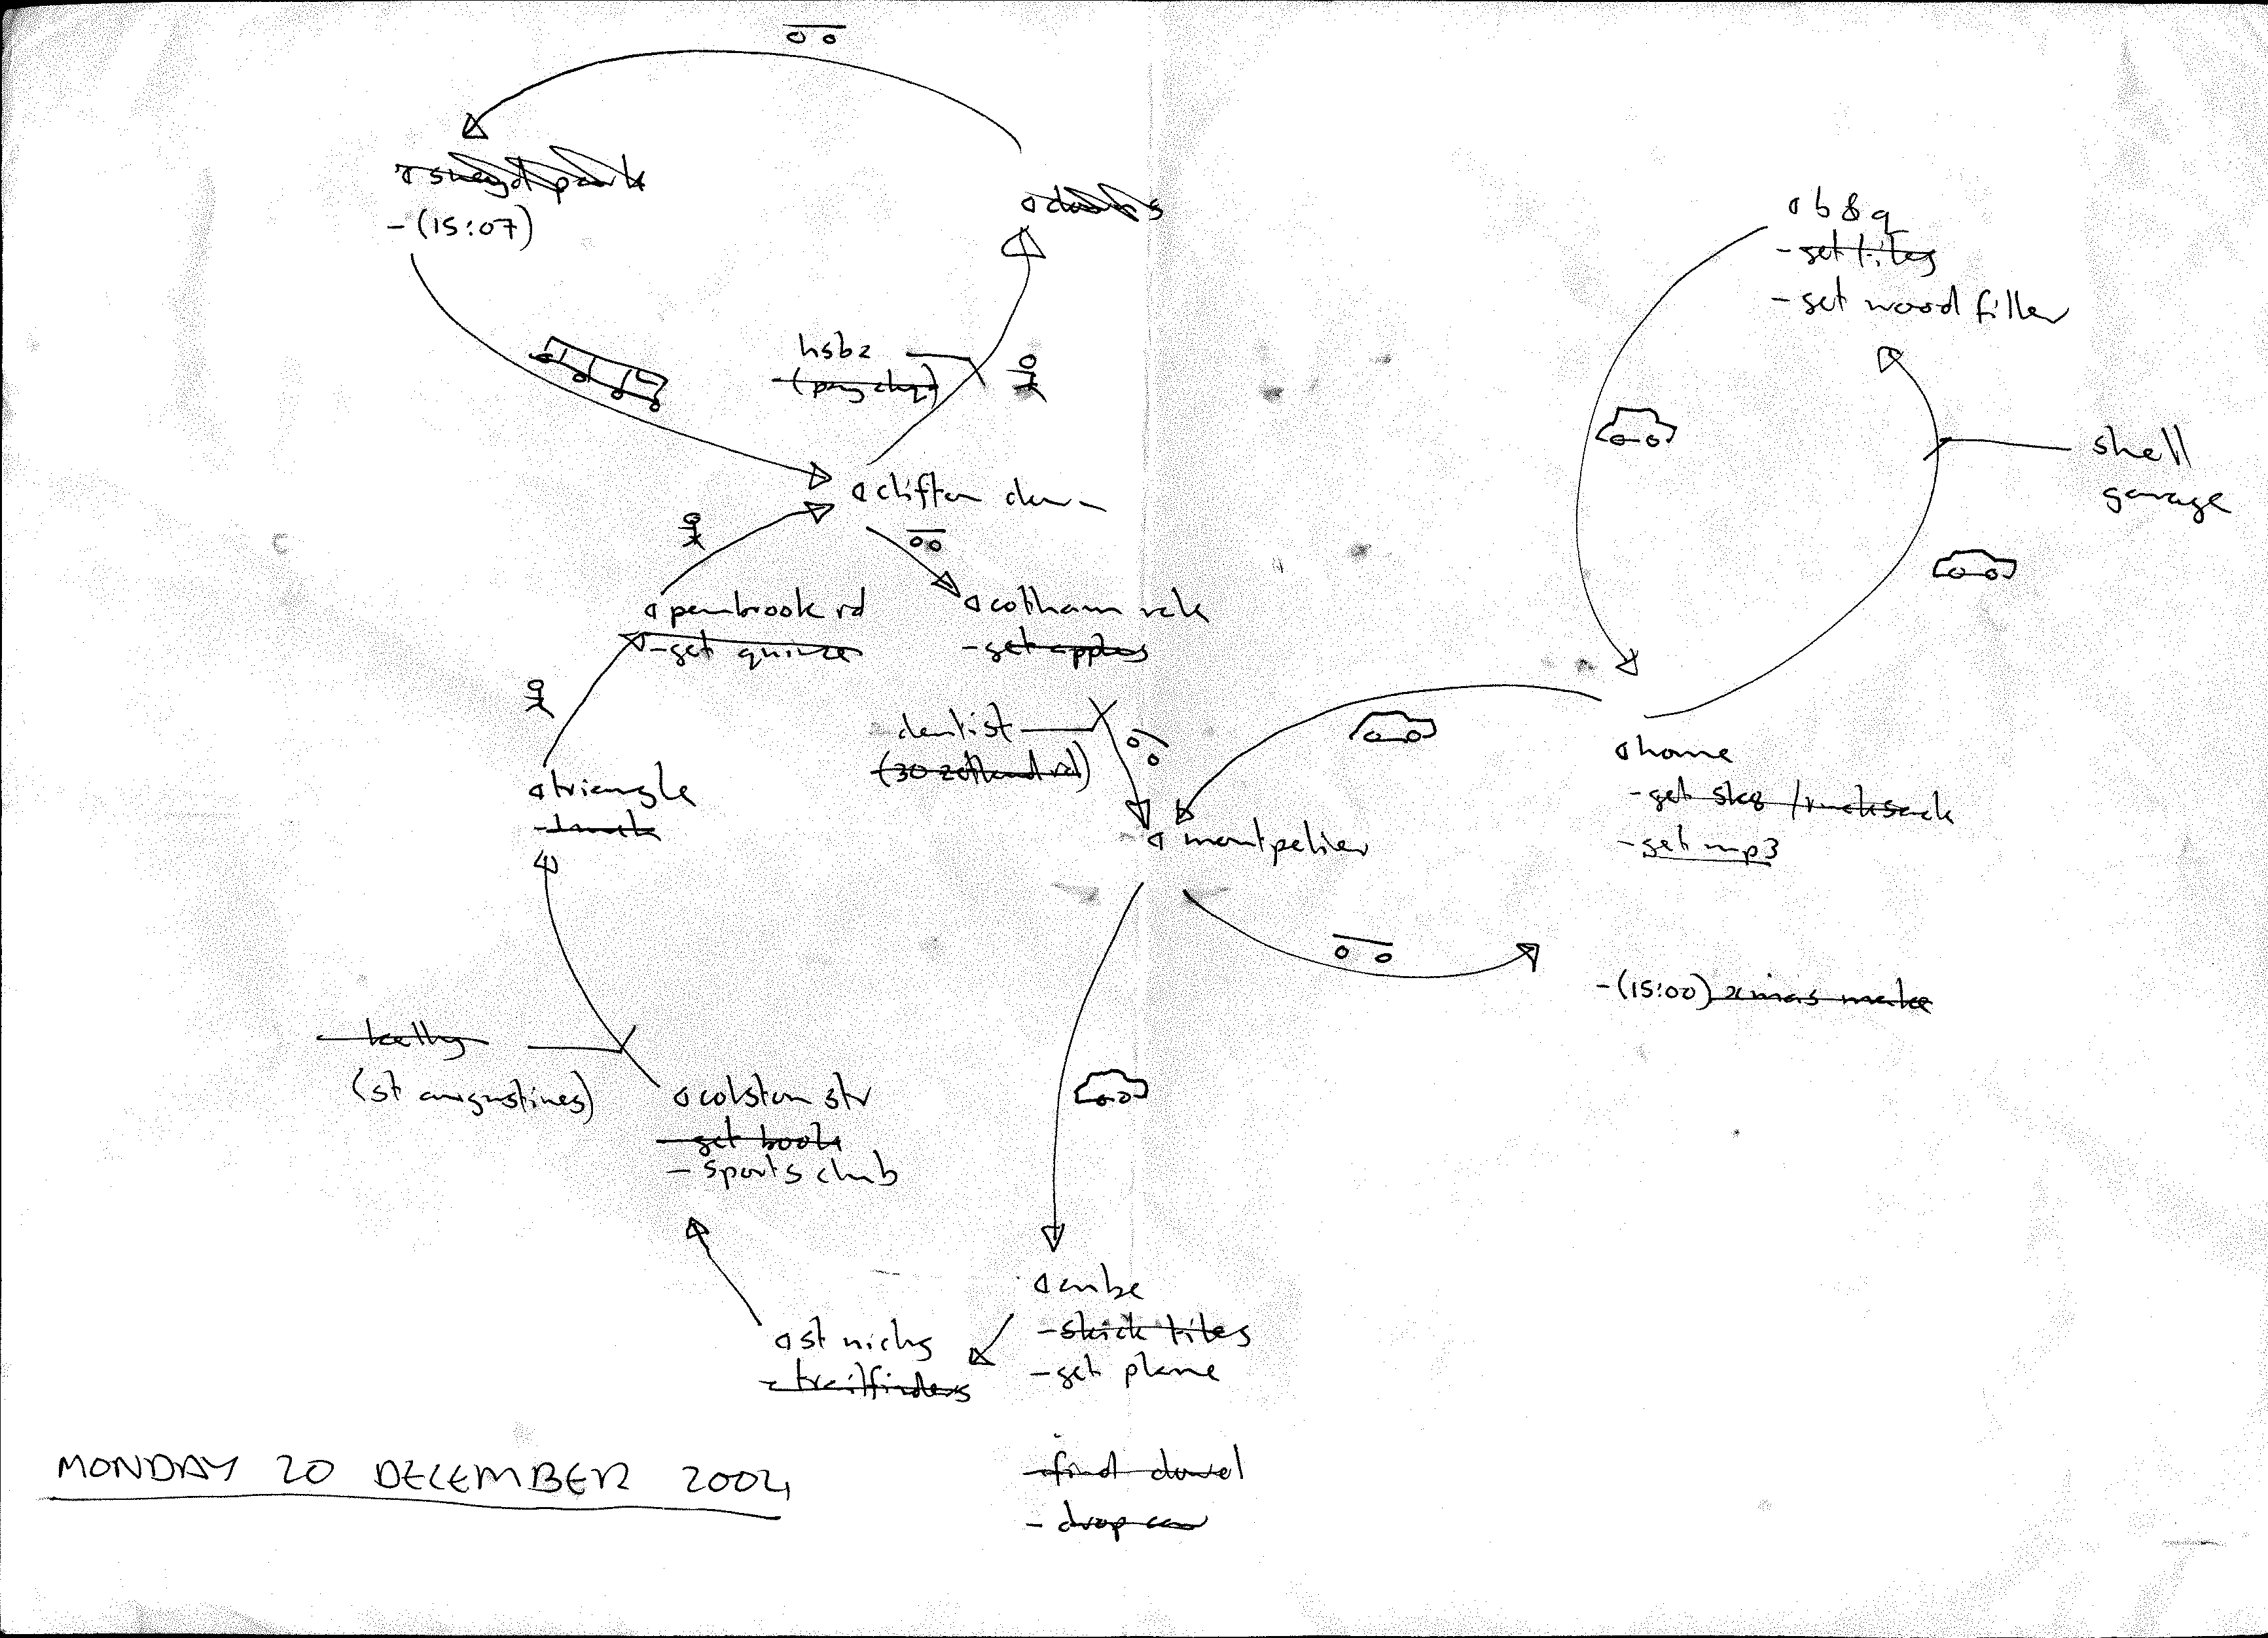 sneyd park
- (15:07)
downs
b & q
- get tiles
- get wood filler
hsbc
(pay chq)
shell
garage
clifton down
pembrook rd
- get quince
cotham
- get apples
dentist
(30 zetland rd)
home
- get sk8 / rucksack
- get mp3
triangle
montpelier
- (15:00) xmas
kelly
(st augustines)
colston str
- get book
- sports club
cube
- stick tiles
- get plane
st nichs
- trailfinders
- find dowel
- drop car
MONDAY 20 DECEMBER 2004